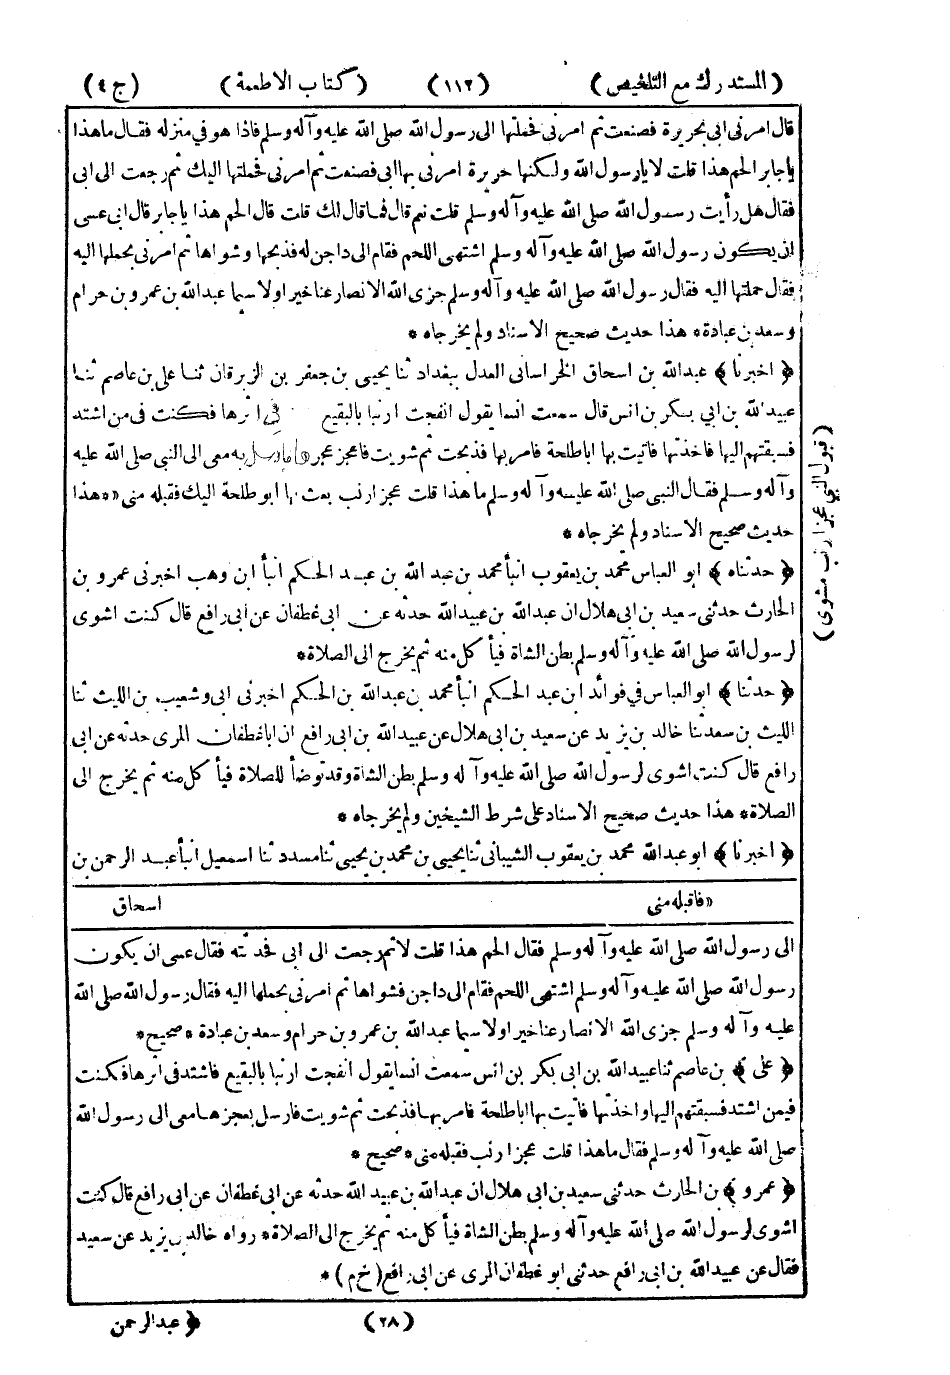 (المستدرك مع التلخيص) (١١٢) (كتاب الاطعمة) (ج ٤)
قال امرنى ابى بحريرة فصنعت ثم امرنى فحملتها الى رسول الله صلى الله عليه وآله وسلم فاذا هو فى منزله فقال ماهذا
ياجابر الحم هذا قلت لا يارسول الله ولكنها حريرة امرنى بها ابى فصنعت ثم امرنى فحملتها اليك ثم رجعت الى ابى
فقال هل رأيت رسول الله صلى الله عليه وآله وسلم قلت نعم قال فما قال لك قلت قال الحم هذا ياجابر قال ابى عسى
ان يكون رسول الله صلى الله عليه وآله وسلم اشتهى اللحم فقام الى داجن له فذبحها وشواها ثم امرنى بحملها اليه
فقال حملتها اليه فقال رسول الله صلى الله عليه وآله وسلم جزى الله الانصار عنا خيرا ولا سيما عبدالله بن عمرو بن حرام
وسعد بن عبادة * هذا حديث صحيح الاسناد ولم يخرجاه *
﴿ اخبرنا ﴾ عبدالله بن اسحاق الخراسانى العدل ببغداد ثنا يحيى بن جعفر بن الزبرقان ثنا على بن عاصم ثنا
عبيد الله بن ابي بكر بن انس قال سمعت انسا يقول انفجت ارنبا بالبقيع فى اثرها فكنت فى من اشتد
فسبقتهم اليها فاخذتها فاتيت بها اباطلحة فامر بها فذبحت ثم شويت فاعجز عجرها فارسل به معى الى النبى صلى الله عليه
وآله وسلم فقال النبى صلى الله عليه وآله وسلم ما هذا قلت عجز ارنب بعث بها ابو طلحة اليك فقبله منى «* هذا
حديث صحيح الاسناد ولم يخرجاه *
﴿ حدثناه ﴾ ابو العباس محمد بن يعقوب انبأ محمد بن عبد الله بن عبد الحكم انبأ ابن وهب اخبرنى عمرو بن
الحارث حدثنى سعيد بن ابى هلال ان عبدالله بن عبيدالله حدثه عن ابى غطفان عن ابى رافع قال كنت اشوى
لرسول الله صلى الله عليه وآله وسلم بطن الشاة فيأكل منه ثم يخرج الى الصلاة *
﴿ حدثنا ﴾ ابو العباس في فوائد ابن عبد الحكم انبأ محمد بن عبدالله بن الحكم اخبرنى ابى وشعيب بن الليث ثنا
الليث بن سعد ثنا خالد بن يزيد عن سعيد بن ابى هلال عن عبيدالله بن ابى رافع ان اباغطفان المرى حدثه عن ابى
رافع قال كنت اشوى لرسول الله صلى الله عليه وآله وسلم بطن الشاة وقد توضأ للصلاة فيأكل منه ثم يخرج الى
الصلاة * هذا حديث صحيح الاسناد على شرط الشيخين ولم يخرجاه *
﴿ اخبرنا ﴾ ابو عبدالله محمد بن يعقوب الشيبانى ثنا يحيى بن محمد بن يحيى ثنا مسدد ثنا اسمعيل انبأ عبد الرحمن بن
« فاقبله منى اسحاق
الى رسول الله صلى الله عليه وآله وسلم فقال الحم هذا قلت لا ثم رجعت الى ابى فحدثته فقال عسى ان يكون
رسول الله صلى الله عليه وآله وسلم اشتهى اللحم فقام الى داجن فشواها ثم امرنى بحملها اليه فقال رسول الله صلى الله
عليه وآله وسلم جزى الله الانصار عنا خيرا ولا سيما عبدالله بن عمرو بن حرام وسعد بن عبادة * صحيح *
﴿ على ﴾ بن عاصم ثنا عبيد الله بن ابى بكر بن انس سمعت انسا يقول انفجت ارنبا بالبقيع فاشتد فى اثرها فكنت
فيمن اشتد فسبقتهم اليها واخذتها فأتيت بها اباطلحة فامر بها فذبحت ثم شويت فارسل بعجزها معى الى رسول الله
صلى الله عليه وآله وسلم فقال ماهذا قلت عجز ارنب فقبله منى * صحيح *
﴿ عمرو ﴾ بن الحارث حدثنى سعيد بن ابى هلال ان عبدالله بن عبيد الله حدثه عن ابى غطفان عن ابى رافع قال كنت
اشوى لرسول الله صلى الله عليه وآله وسلم بطن الشاة فيأكل منه ثم يخرج الى الصلاة * رواه خالد بن يزيد عن سعيد
فقال عن عبيدالله بن ابى رافع حدثنى ابو غطفان المرى عن ابى رافع (خ م) *
(٢٨) ﴿ عبدالرحمن
(قبول النبى عجز ارنب مشوى)